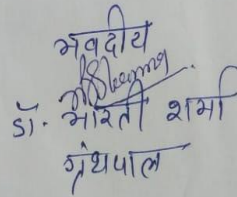 भवदीय
डॉ. भारती शर्मा
ग्रंथपाल